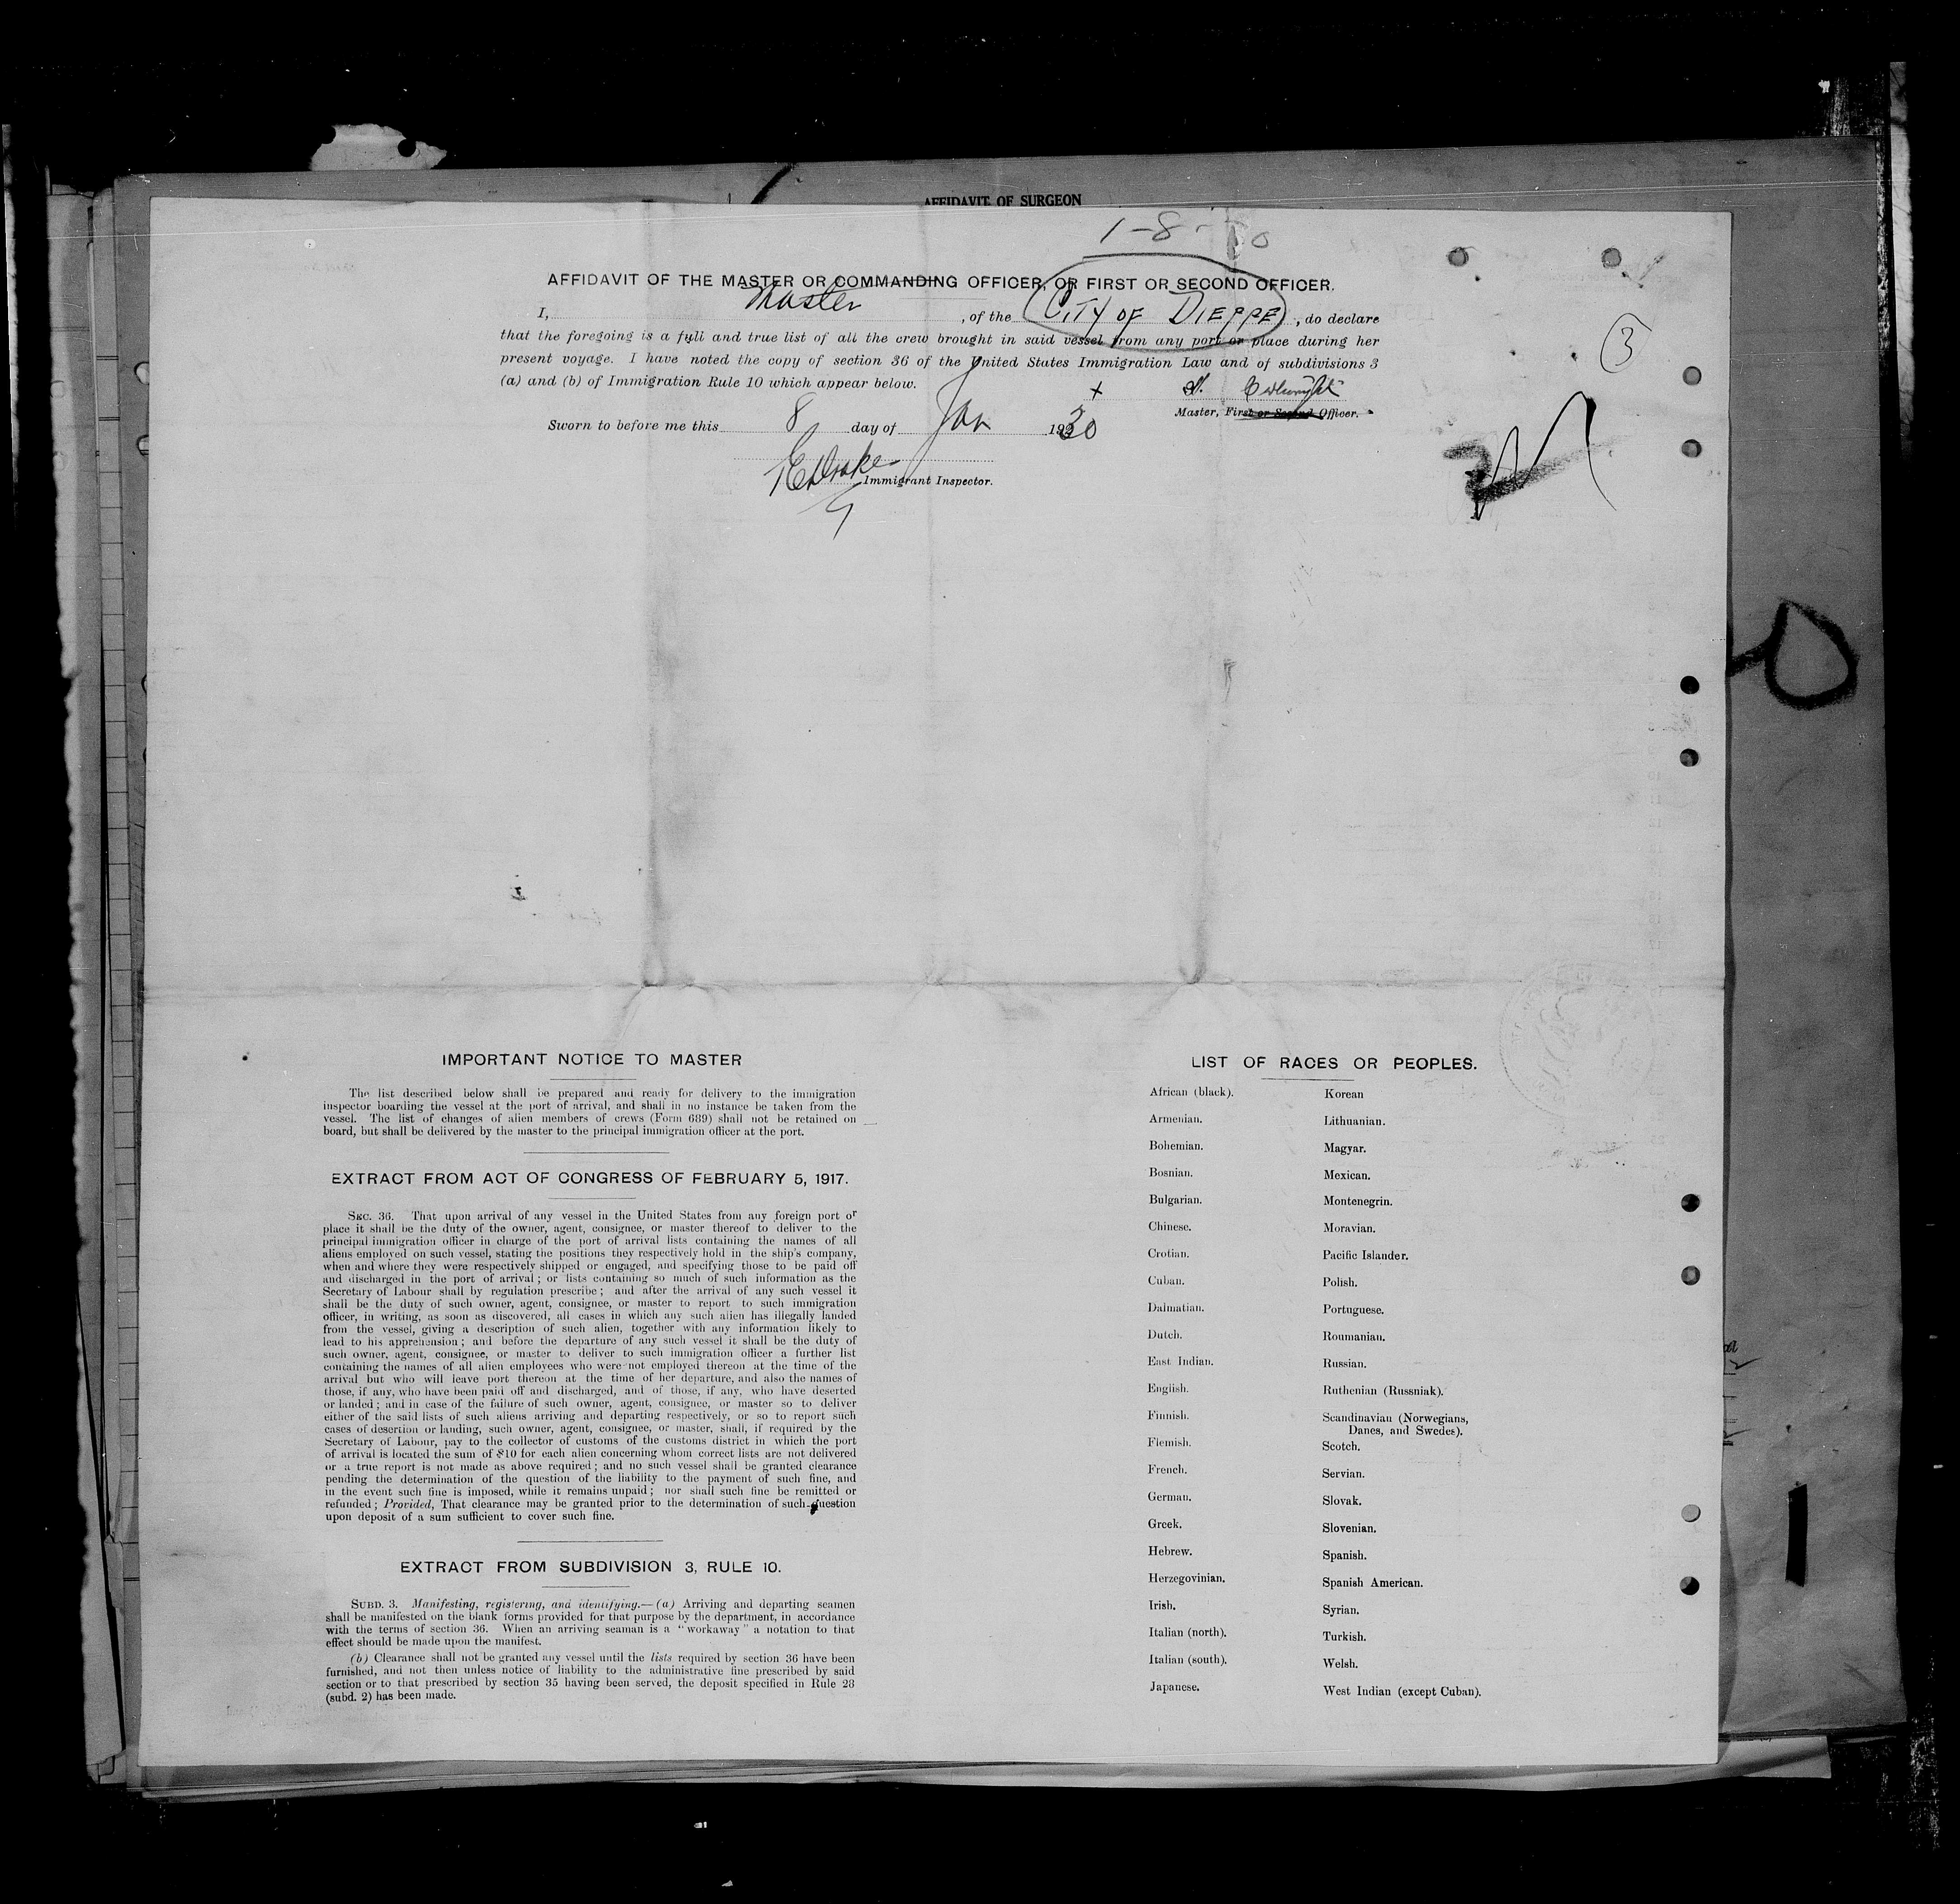 AFFIDAVIT OF SURGEON
1-8-30
AFFIDAVIT OF THE MASTER OR COMMANDING OFFICER, OR FIRST OR SECOND OFFICER.
I, Master, of the CITY OF DIEPPE, do declare
that the foregoing is a full and true list of all the crew brought in said vessel from any port or place during her
present voyage. I have noted the copy of section 36 of the United States Immigration Law and of subdivisions 3
(a) and (b) of Immigration Rule 10 which appear below.
3
x
Master, First or Second Officer.
Sworn to before me this 8 day of Jan 1930
Drake
Immigrant Inspector.
IMPORTANT NOTICE TO MASTER
The list described below shall be prepared and ready for delivery to the immigration
inspector boarding the vessel at the port of arrival, and shall in no instance be taken from the
vessel. The list of changes of alien members of crews (Form 689) shall not be retained on
board, but shall be delivered by the master to the principal immigration officer at the port.
EXTRACT FROM ACT OF CONGRESS OF FEBRUARY 5, 1917.
SEC. 36. That upon arrival of any vessel in the United States from any foreign port or
place it shall be the duty of the owner, agent, consignee, or master thereof to deliver to the
principal immigration officer in charge of the port of arrival lists containing the names of all
aliens employed on such vessel, stating the positions they respectively hold in the ship's company,
when and where they were respectively shipped or engaged, and specifying those to be paid off
and discharged in the port of arrival; or lists containing so much of such information as the
Secretary of Labour shall by regulation prescribe; and after the arrival of any such vessel it
shall be the duty of such owner, agent, consignee, or master to report to such immigration
officer, in writing, as soon as discovered, all cases in which any such alien has illegally landed
from the vessel, giving a description of such alien, together with any information likely to
lead to his apprehension; and before the departure of any such vessel it shall be the duty of
such owner, agent, consignee, or master to deliver to such immigration officer a further list
containing the names of all alien employees who were not employed thereon at the time of the
arrival but who will leave port thereon at the time of her departure, and also the names of
those, if any, who have been paid off and discharged, and of those, if any, who have deserted
or landed; and in case of the failure of such owner, agent, consignee, or master so to deliver
either of the said lists of such aliens arriving and departing respectively, or so to report such
cases of desertion or landing, such owner, agent, consignee, or master, shall, if required by the
Secretary of Labour, pay to the collector of customs of the customs district in which the port
of arrival is located the sum of $10 for each alien concerning whom correct lists are not delivered
or a true report is not made as above required; and no such vessel shall be granted clearance
pending the determination of the question of the liability to the payment of such fine, and
in the event such fine is imposed, while it remains unpaid; nor shall such fine be remitted or
refunded; Provided, That clearance may be granted prior to the determination of such question
upon deposit of a sum sufficient to cover such fine.
EXTRACT FROM SUBDIVISION 3, RULE 10.
SUBD. 3. Manifesting, registering, and identifying.—(a) Arriving and departing seamen
shall be manifested on the blank forms provided for that purpose by the department, in accordance
with the terms of section 36. When an arriving seaman is a "workaway" a notation to that
effect should be made upon the manifest.
(b) Clearance shall not be granted any vessel until the lists required by section 36 have been
furnished, and not then unless notice of liability to the administrative fine prescribed by said
section or to that prescribed by section 35 having been served, the deposit specified in Rule 28
(subd. 2) has been made.
LIST OF RACES OR PEOPLES.
African (black).
Armenian.
Bohemian.
Bosnian.
Bulgarian.
Chinese.
Crotian.
Cuban.
Dalmatian.
Dutch.
East Indian.
English.
Finnish.
Flemish.
French.
German.
Greek.
Hebrew.
Herzegovinian.
Irish.
Italian (north).
Italian (south).
Japanese.
Korean
Lithuanian.
Magyar.
Mexican.
Montenegrin.
Moravian.
Pacific Islander.
Polish.
Portuguese.
Roumanian.
Russian.
Ruthenian (Russniak).
Scandinavian (Norwegians,
Danes, and Swedes).
Scotch.
Servian.
Slovak.
Slovenian.
Spanish.
Spanish American.
Syrian.
Turkish.
Welsh.
West Indian (except Cuban).